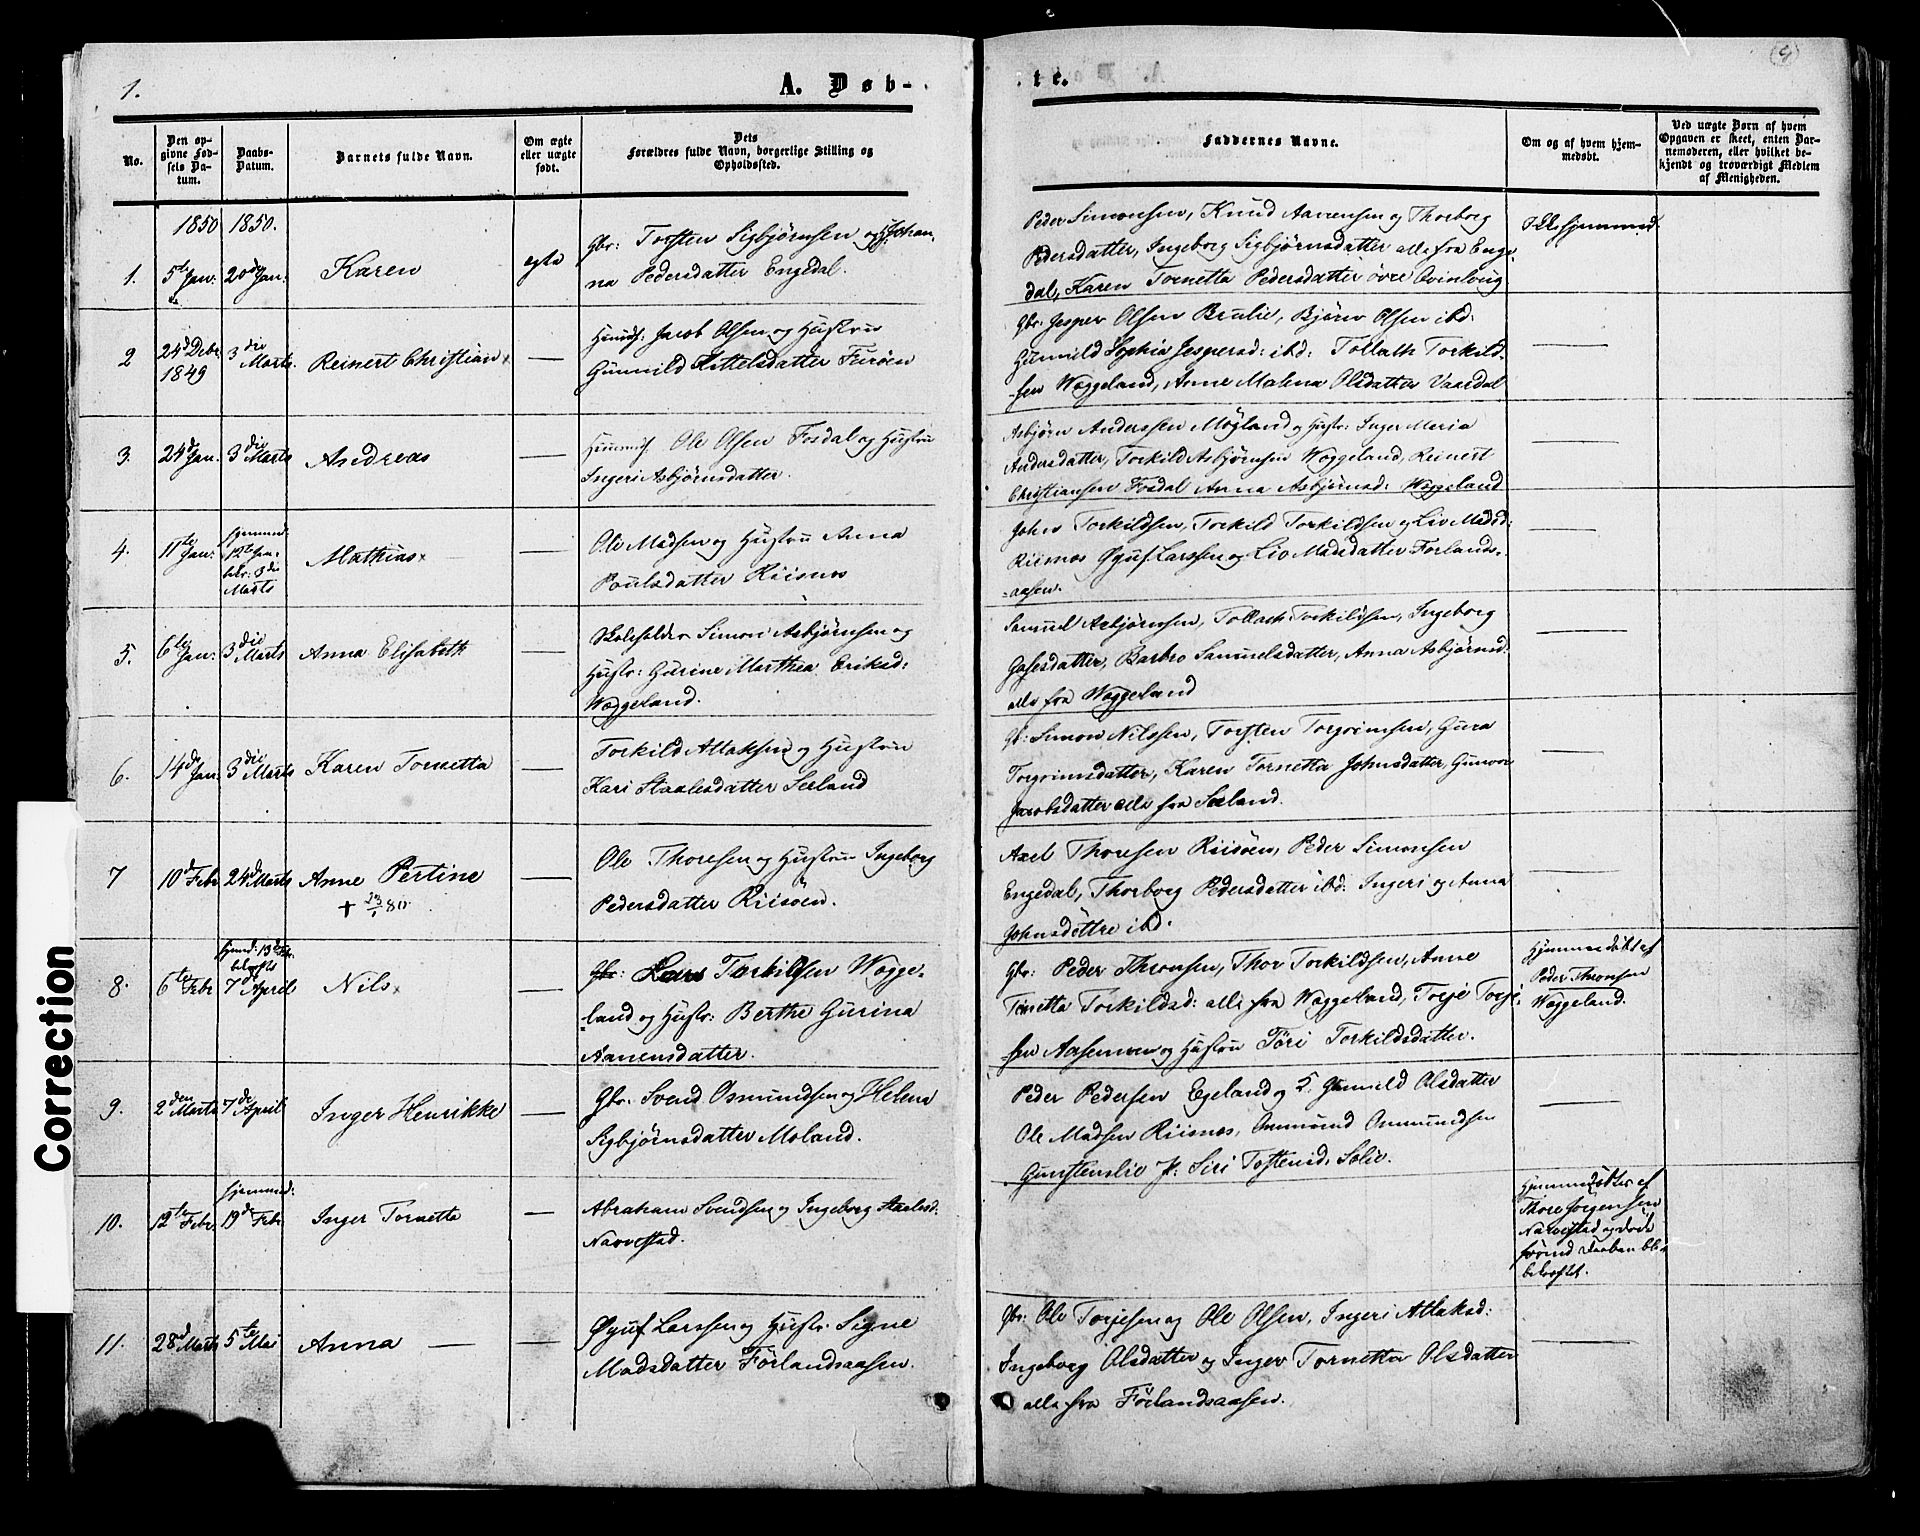 1.
A. Døb-
te.
No.
Den op-
givne Fød-
sels Da-
tum.
Daabs-
Datum.
Barnets fulde Navn.
Om ægte
eller uægte
født.
Dets
Forældres fulde Navn, borgerlige Stilling og
Opholdssted.
Faddernes Navne.
Om og af hvem hjem-
medøbt.
Ved uægte Børn af hvem
Opgaven er skeet, enten Bar-
nemoderen, eller hvilket be-
kjendt og troværdigt Medlem
af Menigheden.
1850
1850.
1.
5te Jan:
20de Jan:
Karen
egte
Gbr: Torsten Sigbjørnsen og Johan-
na Pedersdatter Engedal.
Peder Simonsen, Knud Aanensen og Thorborg
Pedersdatter, Ingeborg Sigbjørnsdatter alle fra Enge-
dal, Karen Tornetta Pedersdatter övre
2
24d Debr
1849
3die
Marts.
Reinert Christian
Huusmd. Jacob Olsen og Hustrue
Gunnild Kittelsdatter Furöen
Gbr: Jesper Olsen Brulie, Bjørn Olsen ibd:
Gunnild Sophia Jespersd: ibd: Tollach Torkild-
sen Wæggeland, Anne Malena Olsdatter Vaardal
3.
24d Jan.
3die Marts
Andreas
Huusmd. Ole Olsen Fosdal og Hustru
Ingeri Asbjørnsdatter.
Asbjørn Anderssen Mögland og Hustr: Inger Maria
Andersdatter, Torkild Asbjørnsen Wæggeland, Reinert
Christiansen Fosdal Anna Asbjørnsd: Wæggeland
4.
11te
Jan:
Hjemmed:
12te Jan.
bekr: 3die
Marts
Mathias
Ole Madsen og Hustru Anna
Poulsdatter Riisnes
John Torkildsen, Torkild Torkildsen og Liv Madsd:
Riisnes Øyuf Larssen og Liv Madsdatter Forlands-
aasen.
5.
6te
Jan:
3die
Marts
Anna Elisabeth
Skoleholder Simon Asbjørnsen og
Hustr: Gurine Marthea Eriksd:
Wæggeland.
Samuel Asbjørnsen, Tollach Torkildsen, Ingeborg
Jahesdatter, Barbro Samuelsdatter, Anna Asbjørnsd.
alle fra Wæggeland
6.
14de
Jan:
3die
Marts
Karen Tornetta
Torkild Atlaksen og Hustrue
Kari Staalesdatter Seeland
Gb: Simon Nilssen, Torsten Torgrimsen, Gura
Torgrimsdatter, Karen Tornetta Johnsdatter, Gunvor
Jacobsdatter alle fra Seeland.
7
10d Febr
24d Marts
Anne Pertine
+ 23/1 80.
Ole Thoresen og Hustrue Ingeborg
Pedersdatter Riisöen.
Axel Thoresen Riisöen, Peder Simonsen
Engedal, Thorborg Pedersdatter ibd. Ingeri og Anna
Johnsdöttre ibd.
8.
6te Febr
Hjemd: 13de Febr.
7d April
Nils
Gbr: Lars Torkildsen Wægge-
land og Hustr: Berthe Gurina
Aanensdatter.
Gbr: Peder Thronsen, Thor Torkildsen, Anne
Tonetta Torkildsd: alle fra Wæggeland, Torje Torje-
sen Aasemoen og Hustru Töri Torkildsdatter.
Hjemmedöbt af
Peder Thronsen
Wæggeland.
9.
2den
Marts
7de
April
Inger Henrikke
Gbr: Svend Osmundsen og Helena
Sigbjørnsdatter Moland.
Peder Pedersen Egeland og H. Gunnild Olsdatter
Ole Madsen Riisnes, Ommund Ommundsen
Gunstenslie P: Siri Tostensd. Solie.
10.
12te Febr.
Hjemmed:
19d Febr
Inger Tornetta
Abraham Svendsen og Ingeborg Staalesd.
Narvestad.
Hjemmedöbt af
Thore Jörgensen
Narvestad og döde
förend Daaben blev
bekræftet.
11.
28d Marts
5te
Mai
Anna
Øyuf Larssen og Hustr. Signe
Madsdatter Förlandsaasen.
Gbr: Ole Torjesen og Ole Olsen, Ingeri Atlaksd:
Ingeborg Olsdatter og Inger Tornetta Olsdatter
alle fra Förlandsaasen.
Correction